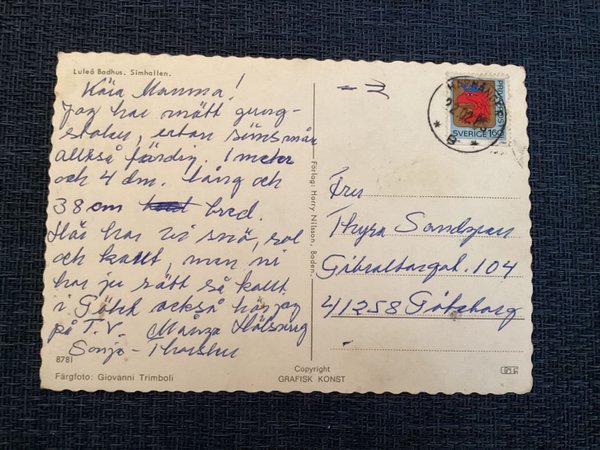 Luleå Badhus. Simhallen.
Kära Mamma!
Jag har mätt gung-
stolen, utan
alltså färdig. 1 meter
och 4 dm. lång och
38 cm bred.
Här har vi snö, sol
och kallt, men ni
har ju rätt så kallt
i Götet också hör jag
på T.V. Många Hälsning
Sonja-
8781
Färgfoto: Giovanni Trimboli
Förlag: Harry Nilsson, Boden.
Copyright
GRAFISK KONST
SVERIGE 160
Fru
Thyra Sandspan
Gibraltargat. 104
41258 Göteborg